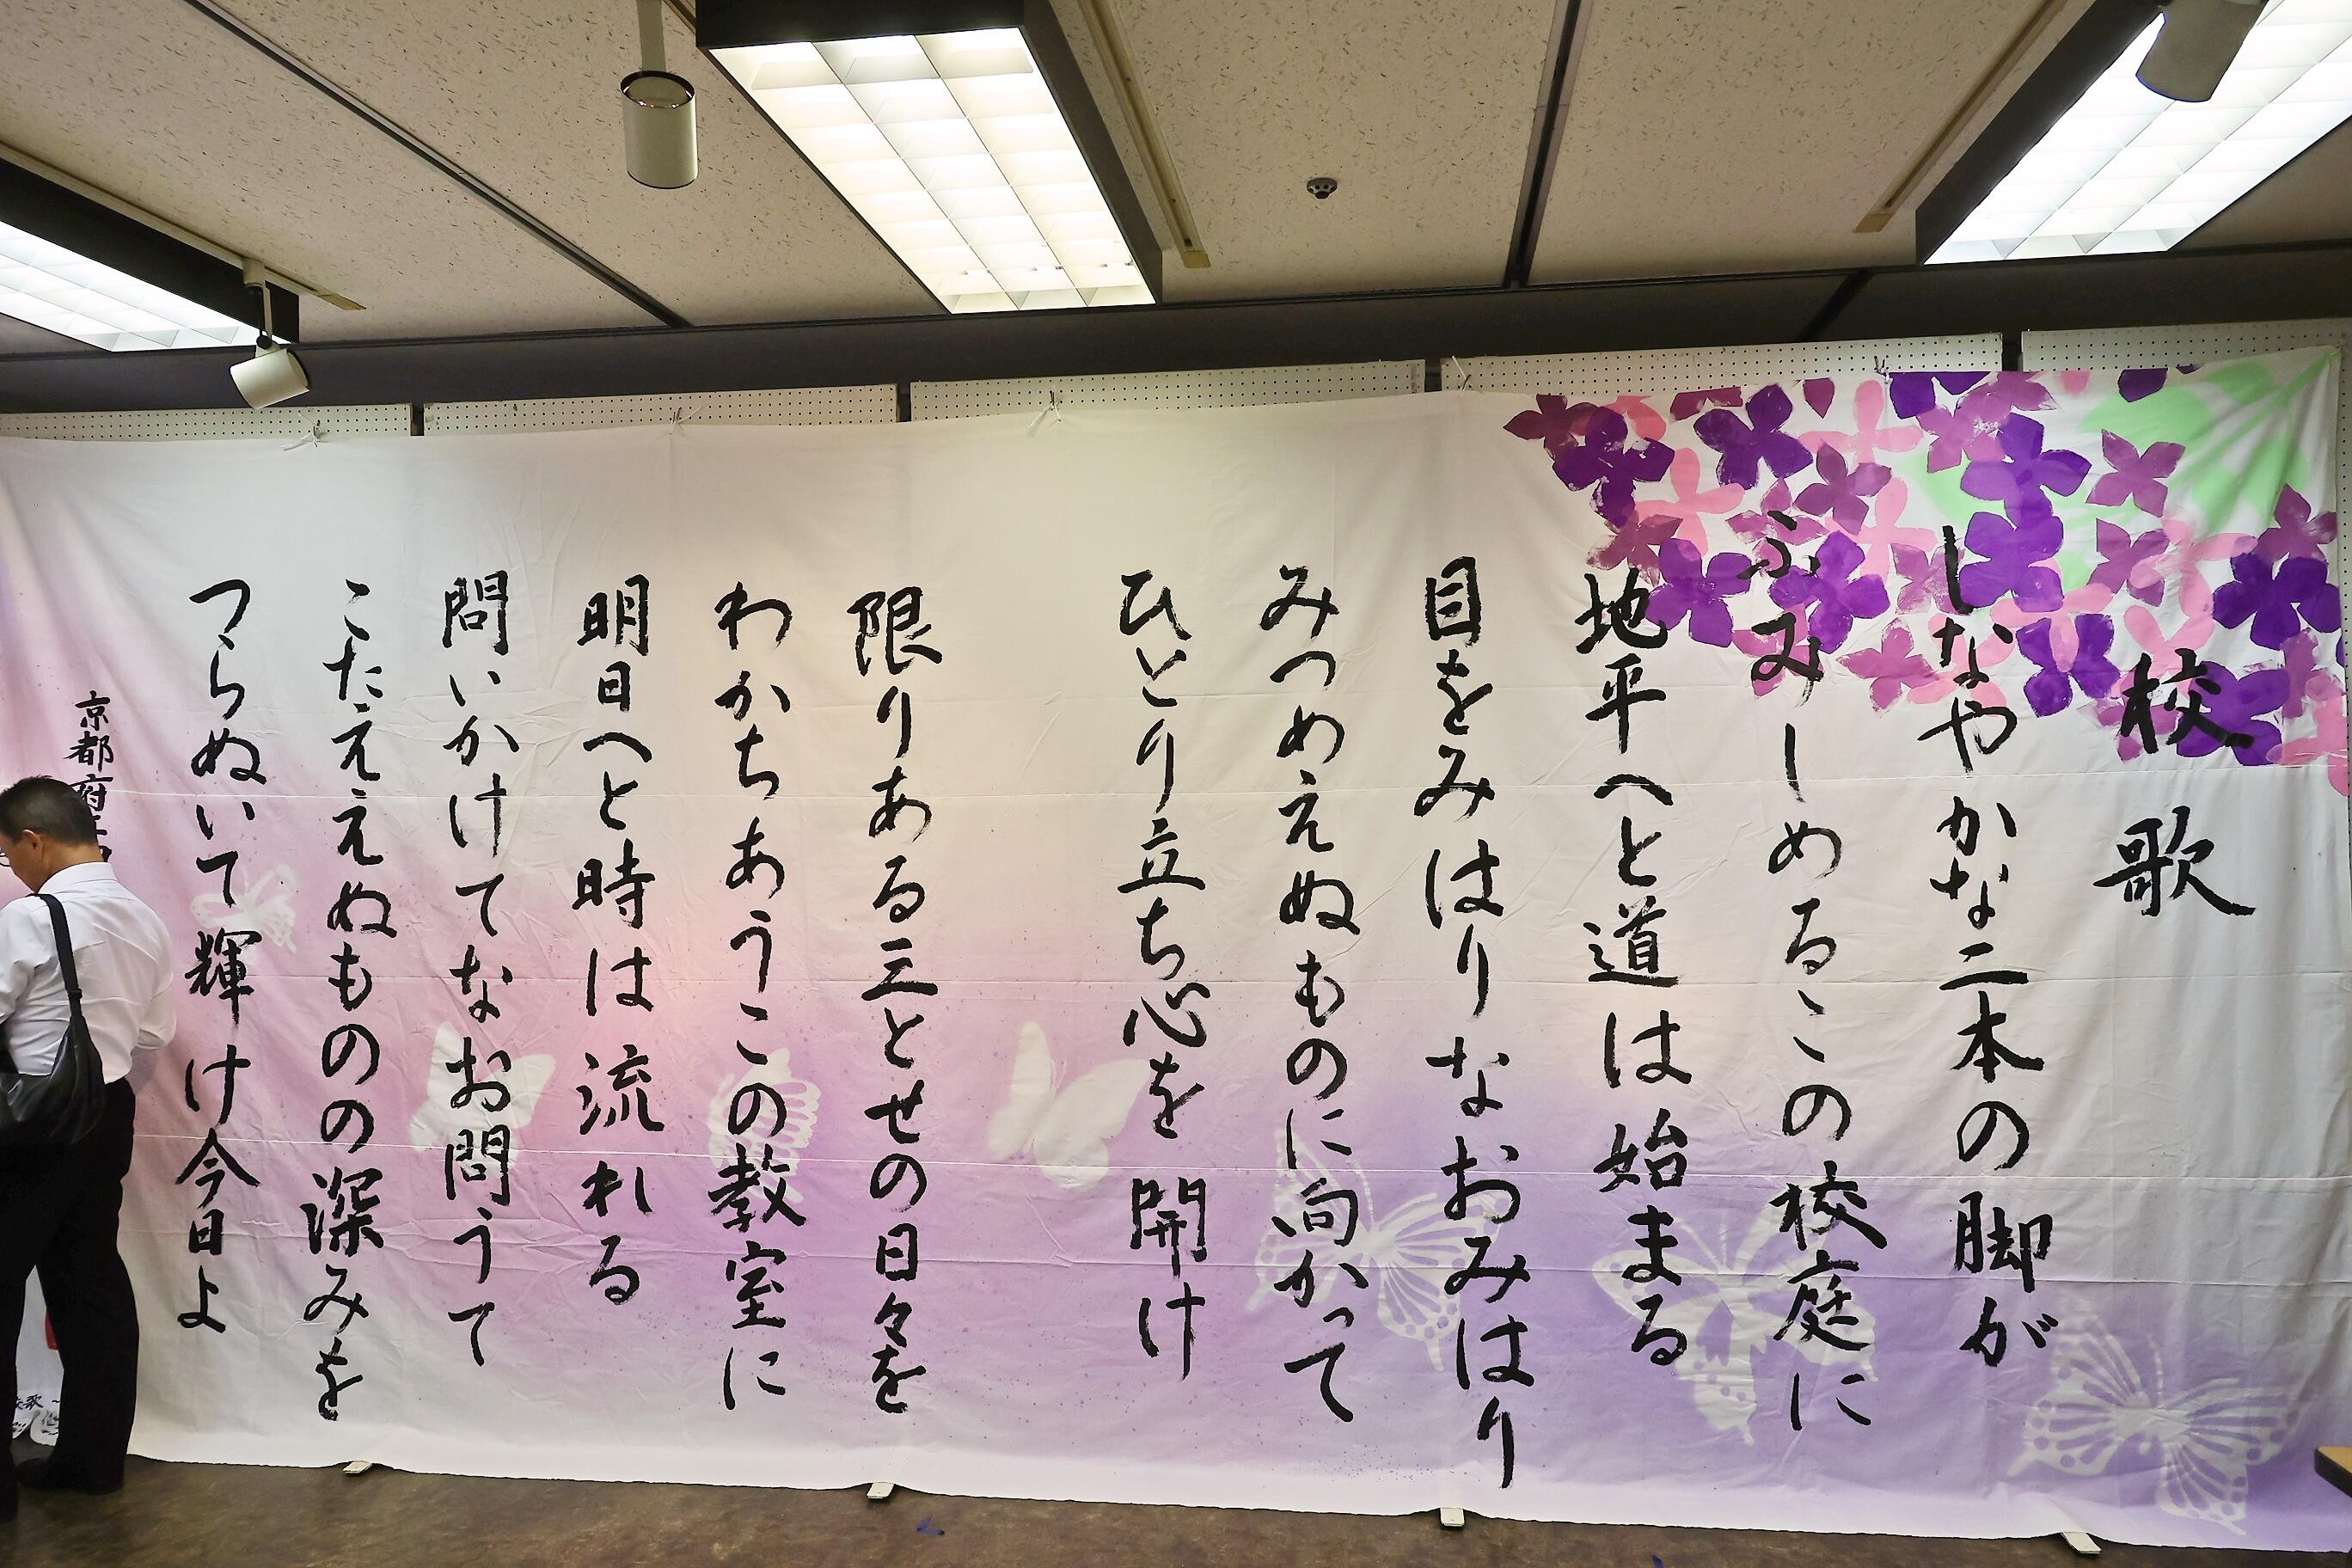 校歌
しなやかな二本の脚が
ふみしめるこの校庭に
地平へと道は始まる
目をみはりなおみはり
みつめえぬものに向かって
ひとり立ち心を開け
限りある三とせの日々を
わかちあうこの教室に
明日へと時は流れる
問いかけてなお問うて
こたええぬものの深みを
つらぬいて輝け今日よ
京都府